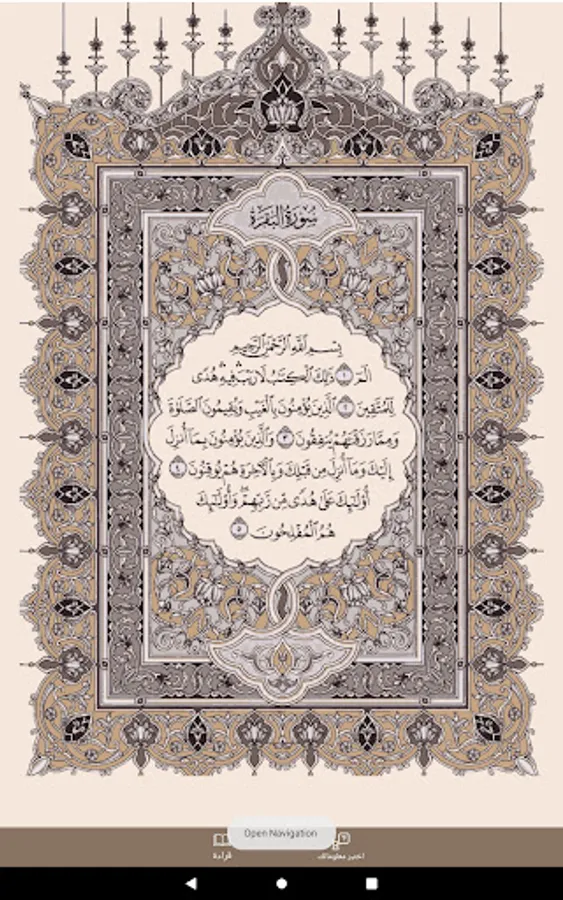 سُورَةُ البَقَرَةِ
بِسْمِ ٱللَّهِ ٱلرَّحْمَٰنِ ٱلرَّحِيمِ
الٓمٓ ١ ذَٰلِكَ ٱلْكِتَٰبُ لَا رَيْبَ ۛ فِيهِ ۛ هُدًى
لِّلْمُتَّقِينَ ٢ ٱلَّذِينَ يُؤْمِنُونَ بِٱلْغَيْبِ وَيُقِيمُونَ ٱلصَّلَوٰةَ
وَمِمَّا رَزَقْنَٰهُمْ يُنفِقُونَ ٣ وَٱلَّذِينَ يُؤْمِنُونَ بِمَآ أُنزِلَ
إِلَيْكَ وَمَآ أُنزِلَ مِن قَبْلِكَ وَبِٱلْءَاخِرَةِ هُمْ يُوقِنُونَ ٤
أُو۟لَٰٓئِكَ عَلَىٰ هُدًى مِّن رَّبِّهِمْ ۖ وَأُو۟لَٰٓئِكَ
هُمُ ٱلْمُفْلِحُونَ ٥
Open Navigation
اختبر معلوماتك
قراءة